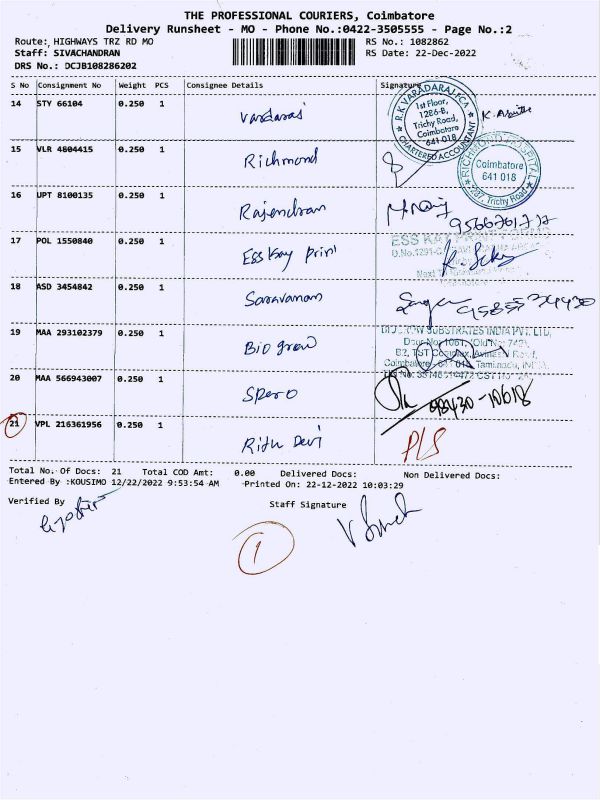 THE PROFESSIONAL COURIERS, Coimbatore
Delivery Runsheet - MO - Phone No.:0422-3505555 - Page No.:2
Route: HIGHWAYS TRZ RD MO RS No.: 1082862
Staff: SIVACHANDRAN RS Date: 22-Dec-2022
DRS No.: DCJB108286202
S No Consignment No Weight PCS Consignee Details Signature
14 STY 66104 0.250 1 Vardaraj
R.K VARADARAJ FCA
CHARTERED ACCOUNTANT
1st Floor,
1286-B,
Trichy Road,
Coimbatore
641 018
15 VLR 4804415 0.250 1 Richmond
RICHMOND HOSPITAL
Coimbatore
641 018
1287, Trichy Road
16 UPT 8100135 0.250 1 Rajendran
17 POL 1550840 0.250 1 Ess Kay Print
ESS KAY
18 ASD 3454842 0.250 1 Saravanan
19 MAA 293102379 0.250 1 Bio grow
SUBSTRATES INDIA PVT. LTD,
20 MAA 566943007 0.250 1 Spero
98430-10618
21 VPL 216361956 0.250 1 Ridu Devi
P/S
Total No. Of Docs: 21 Total COD Amt: 0.00 Delivered Docs: Non Delivered Docs:
Entered By :KOUSIMO 12/22/2022 9:53:54 AM Printed On: 22-12-2022 10:03:29
Verified By Staff Signature
1